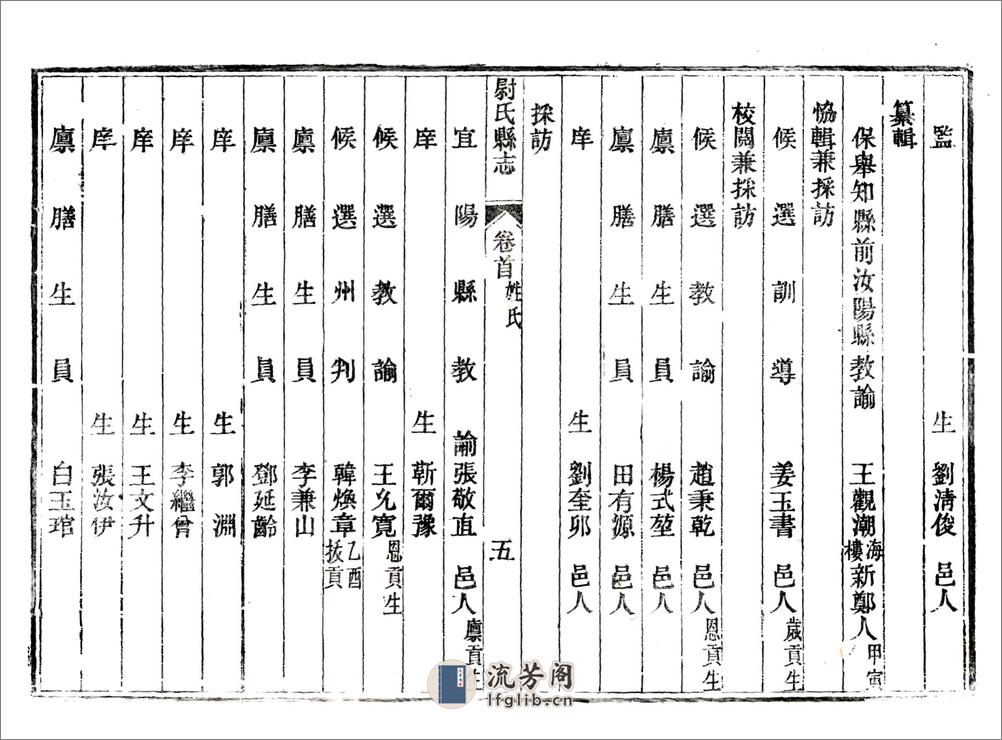 監生劉清俊邑人
纂輯
保舉知縣前汝陽縣教諭王觀潮海樓新鄭人甲寅
恊輯兼採訪
候選訓導姜玉書邑人歲貢生
校閱兼採訪
候選教諭趙秉乾邑人恩貢生
廩膳生員楊式堃邑人
廩膳生員田有源邑人
庠生劉奎卯邑人
採訪
尉氏縣志卷首姓氏五
宜陽縣教諭張敬直邑人廪貢生
庠生靳爾豫
候選教諭王允寬恩貢生
候選州判韓煥章乙酉拔貢
廩膳生員李兼山
廩膳生員鄧延齡
庠生郭淵
庠生李繼曾
庠生王文升
庠生張汝伊
廩膳生員白玉琯
流芳阁
lfglib.cn